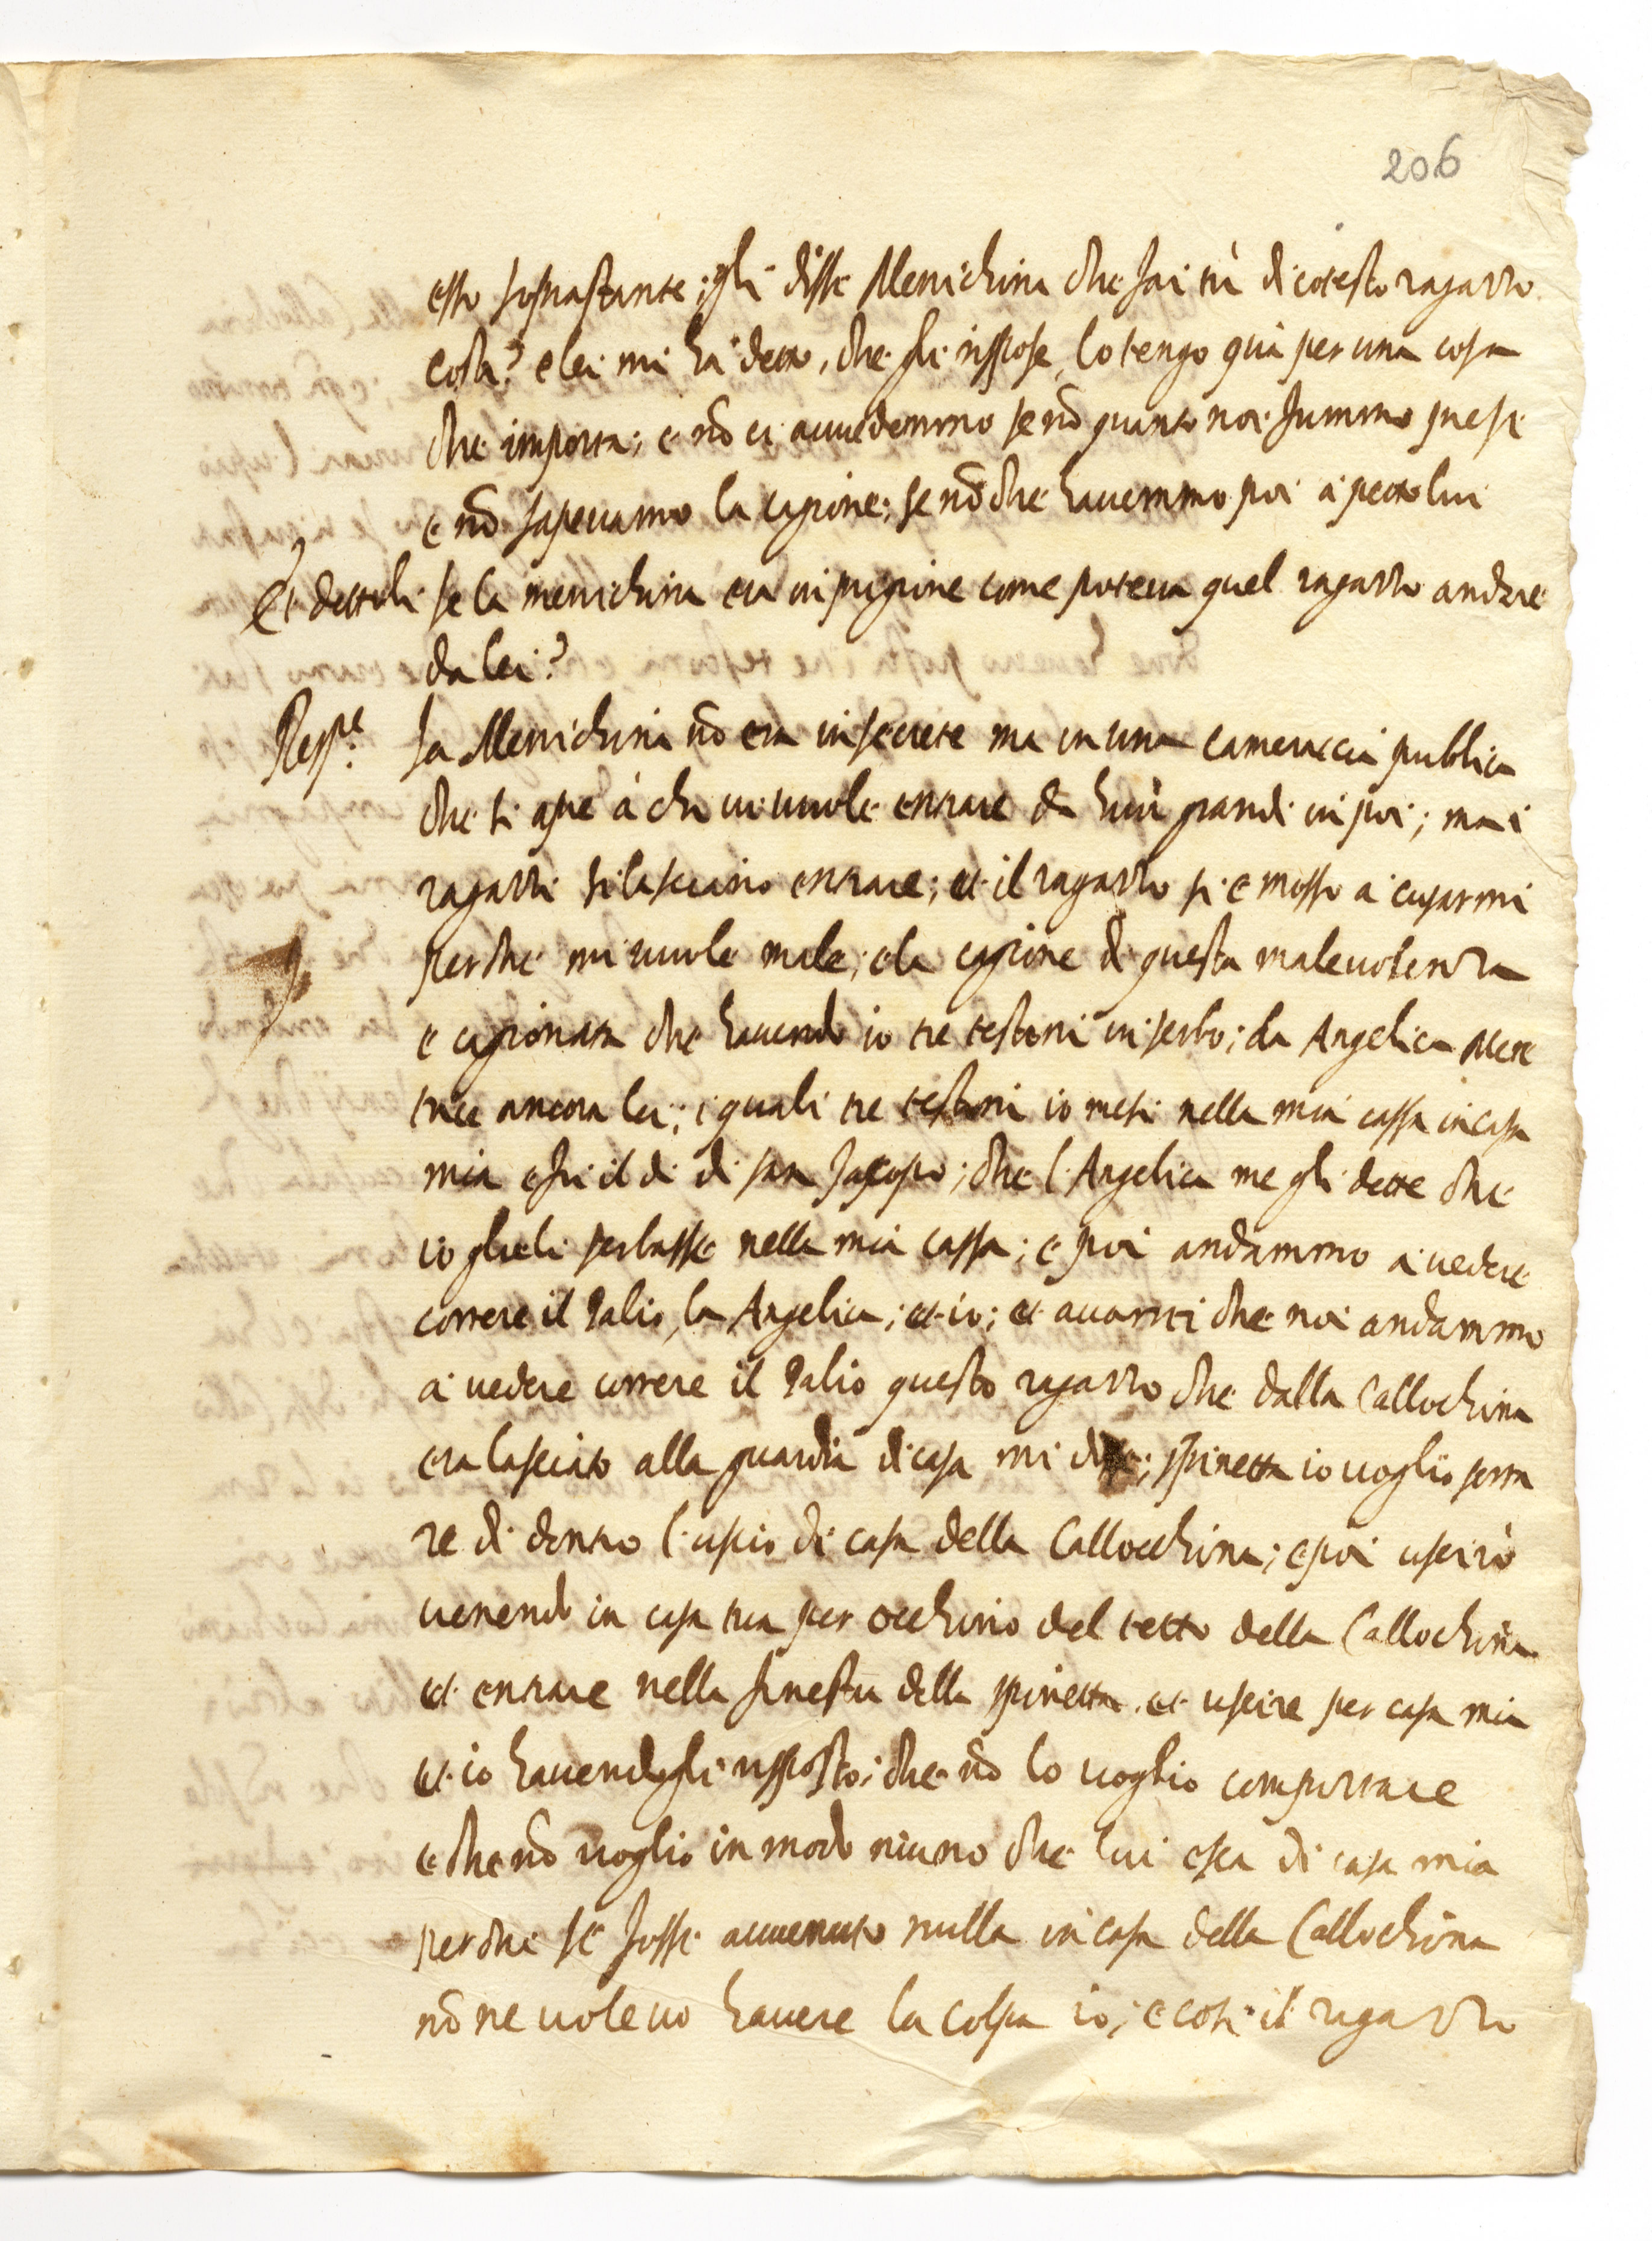 206
esso soprastante; gli disse Menichina che fai tu di cotesto ragazzo
costà? e lei mi hà detto, che gli rispose, lo tengo quà per una cosa
che importa; e nõ ci avvedemmo se nõ quanto noi fummo prese
e nõ sapevamo la cagione; se nõ che havemmo poi a petto lui
Et dettoli se la menichina era in prigione come poteva quel ragazzo andare
da lei?
Resp.e La Menichina nõ era in secrete ma in una cameraccia publica
che si apre à chi vi vuole entrare da huũ grandi in poi; ma i
ragazzi si lasciano entrare; et il ragazzo si e mosso a cusarmi
perche mi vuole male; e la cagione di questa malevolenza
e cagionata che havendo io tre testoni in serbo; da Angelica Mere
trice ancora lei; i quali tre testoni io mesi nella mia cassa in casa
mia e fu il di di san Jacopo; che l'Angelica me gli dette che
io glieli serbasse nella mia cassa; e poi andammo a vedere
correre il Palio, la Angelica; et io; et avanti che noi andammo
a vedere correre il Palio questo ragazzo che dalla Callochina
era lasciato alla guardia di casa mi disse; spinetta io voglio serra
re di dentro l'uscio di casa della Callocchina; e poi uscirò
venendo in casa tua per occhino del tetto della Callochina
et entrare nella finestra della spinetta et uscire per casa mia
et io havendogli risposto; che nõ lo voglio comportare
e che nõ voglio in modo niuno che lui esca di casa mia
perche se fosse avvenuto nulla in casa della Callochina
nõ ne volevo havere la colpa io; e cosi il ragazzo